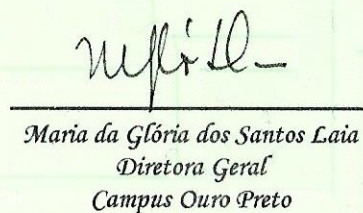 Maria da Glória dos Santos Laia
Diretora Geral
Campus Ouro Preto